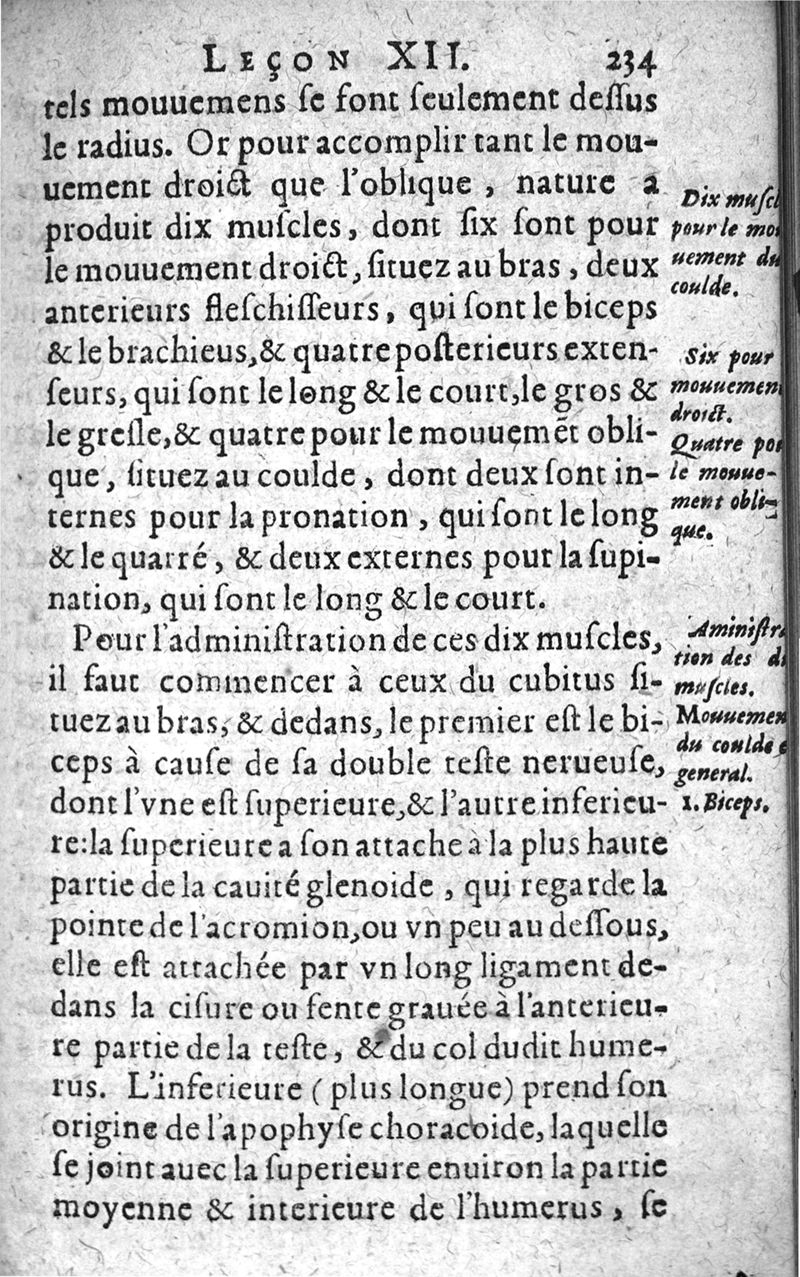 LEÇON XII. 234
tels mouuemens ſe font ſeulement deſſus
le radius. Or pour accomplir tant le mou-
uement droict que l'oblique, nature a
produit dix muſcles, dont ſix ſont pour
le mouuement droict, ſituez au bras, deux
anterieurs fleſchiſſeurs, qui ſont le biceps
& le brachieus, & quatre poſterieurs exten-
ſeurs, qui ſont le long & le court, le gros &
le greſle, & quatre pour le mouuemẽt obli-
que, ſituez au coulde, dont deux ſont in-
ternes pour la pronation, qui ſont le long
& le quarré, & deux externes pour la ſupi-
nation, qui ſont le long & le court.
Pour l'adminiſtration de ces dix muſcles,
il faut commencer à ceux du cubitus ſi-
tuez au bras, & dedans, le premier eſt le bi-
ceps à cauſe de ſa double teſte nerueuſe,
dont l'vne eſt ſuperieure, & l'autre inferieu-
re: la ſuperieure a ſon attache à la plus haute
partie de la cauité glenoide, qui regarde la
pointe de l'acromion, ou vn peu au deſſous,
elle eſt attachée par vn long ligament de-
dans la ciſure ou fente grauée à l'anterieu-
re partie de la teſte, & du col dudit hume-
rus. L'inferieure (plus longue) prend ſon
origine de l'apophyſe choracoide, laquelle
ſe joint auec la ſuperieure enuiron la partie
moyenne & interieure de l'humerus, ſe
Dix muſcl
pour le mou
uement du
coulde.
Six pour
mouuemen
droict.
Quatre pou
le mouue-
ment obli-
que.
Aminiſtra
tion des di
muſcles.
Mouuemen
du coulde e
general.
1. Biceps.